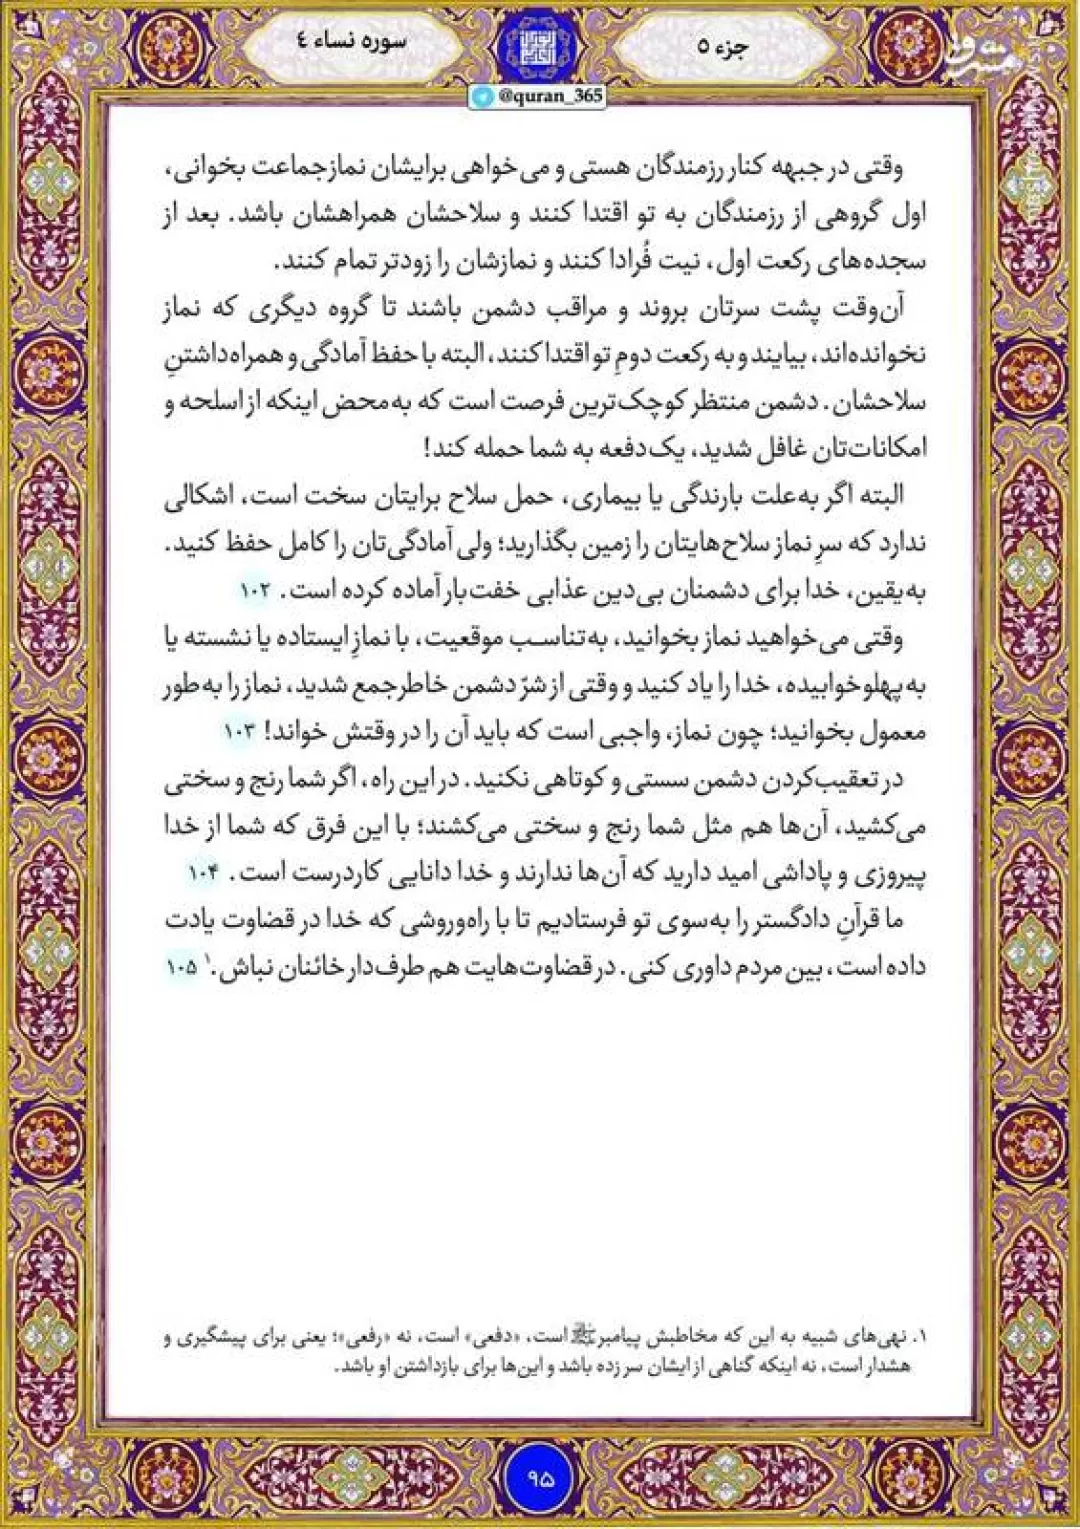 جزء ۵
سوره نساء ٤
@quran_365
مشرق
وقتی در جبهه کنار رزمندگان هستی و می‌خواهی برایشان نماز جماعت بخوانی،
اول گروهی از رزمندگان به تو اقتدا کنند و سلاحشان همراهشان باشد. بعد از
سجده‌های رکعت اول، نیت فُرادا کنند و نمازشان را زودتر تمام کنند.
آن‌وقت پشت سرتان بروند و مراقب دشمن باشند تا گروه دیگری که نماز
نخوانده‌اند، بیایند و به رکعت دومِ تو اقتدا کنند، البته با حفظ آمادگی و همراه‌داشتنِ
سلاحشان. دشمن منتظر کوچک‌ترین فرصت است که به‌محض اینکه از اسلحه و
امکانات‌تان غافل شدید، یک‌دفعه به شما حمله کند!
البته اگر به‌علت بارندگی یا بیماری، حمل سلاح برایتان سخت است، اشکالی
ندارد که سرِ نماز سلاح‌هایتان را زمین بگذارید؛ ولی آمادگی‌تان را کامل حفظ کنید.
به‌یقین، خدا برای دشمنان بی‌دین عذابی خفت‌بار آماده کرده است. ۱۰۲
وقتی می‌خواهید نماز بخوانید، به‌تناسب موقعیت، با نمازِ ایستاده یا نشسته یا
به پهلو خوابیده، خدا را یاد کنید و وقتی از شرّ دشمن خاطرجمع شدید، نماز را به‌طور
معمول بخوانید؛ چون نماز، واجبی است که باید آن را در وقتش خواند! ۱۰۳
در تعقیب‌کردن دشمن سستی و کوتاهی نکنید. در این راه، اگر شما رنج و سختی
می‌کشید، آن‌ها هم مثل شما رنج و سختی می‌کشند؛ با این فرق که شما از خدا
پیروزی و پاداشی امید دارید که آن‌ها ندارند و خدا دانایی کاردرست است. ۱۰۴
ما قرآنِ دادگستر را به‌سوی تو فرستادیم تا با راه‌وروشی که خدا در قضاوت یادت
داده است، بین مردم داوری کنی. در قضاوت‌هایت هم طرف‌دار خائنان نباش.۱ ۱۰۵
۱. نهی‌های شبیه به این که مخاطبش پیامبرﷺ است، «دفعی» است، نه «رفعی»؛ یعنی برای پیشگیری و
هشدار است، نه اینکه گناهی از ایشان سر زده باشد و این‌ها برای بازداشتن او باشد.
۹۵